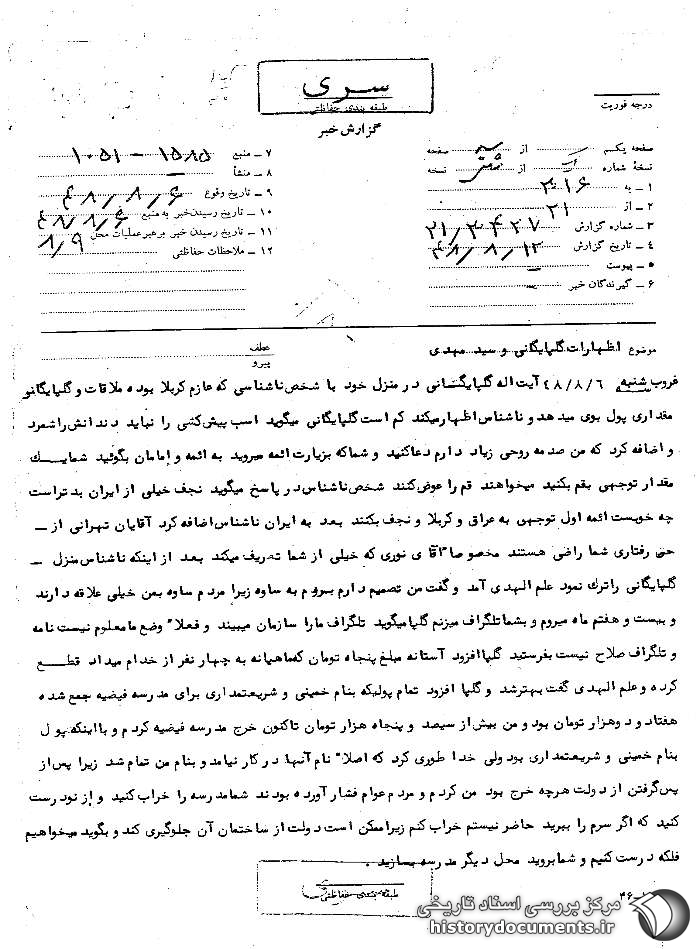 سری
طبقه بندی حفاظتی
گزارش خبر
درجه فوریت
صفحه یکم از سه صفحه
نسخهٔ شماره از نسخه
۱ ـ به ۳۱۶
۲ ـ از ۲۱
۳ ـ شماره گزارش ۲۱/۳۴۲۷
۴ ـ تاریخ گزارش ۴۸/۸/۱۳
۵ ـ پیوست
۶ ـ گیرندگان خبر
۷ ـ منبع ۱۵۸۵ – ۱۰۵۱
۸ ـ منشأ
۹ ـ تاریخ وقوع ۴۸/۸/۶
۱۰ ـ تاریخ رسیدن خبر به منبع ۴۸/۸/۶
۱۱ ـ تاریخ رسیدن خبر برهبر عملیات محل ۸/۹
۱۲ ـ ملاحظات حفاظتی
موضوع اظهارات گلپایگانی و سید مهدی
عطف
پیرو
غروب شنبه ۴۸/۸/۶ آیت اله گلپایگانی در منزل خود با شخص ناشناسی که عازم کربلا بوده ملاقات و گلپایگانی
مقداری پول بوی میدهد و ناشناس اظهار میکند کم است گلپایگانی میگوید اسب پیش کشی را نباید دندانش را شمرد
و اضافه کرد که من صدمه روحی زیاد دارم دعا کنید و شما که بزیارت ائمه میروید به ائمه و امامان بگوئید شما یک
مقدار توجهی بقم بکنید میخواهند قم را عوض کنند شخص ناشناس در پاسخ میگوید نجف خیلی از ایران بدتر است
چه خوبست ائمه اول توجهی به عراق و کربلا و نجف بکنند بعد به ایران ناشناس اضافه کرد آقایان تهرانی از ـ
حتی رفتاری شما راضی هستند مخصوصا" آقای نوری که خیلی از شما تعریف میکند بعد از اینکه ناشناس منزل ـ
گلپایگانی را ترک نمود علم الهدی آمد و گفت من تصمیم دارم بروم به ساوه زیرا مردم ساوه بمن خیلی علاقه دارند
و بیست و هفتم ماه میروم و بشما تلگراف میزنم گلپا میگوید تلگراف ما را سازمان میبیند و فعلا" وضع ما معلوم نیست نامه
و تلگراف صلاح نیست بفرستید گلپا افزود آستانه مبلغ پنجاه تومان که ماهیانه به چهار نفر از خدام میداد قطع
کرده و علم الهدی گفت بهتر شد و گلپا افزود تمام پولیکه بنام خمینی و شریعتمداری برای مدرسه فیضیه جمع شده
هفتاد و دو هزار تومان بود و من بیش از سیصد و پنجاه هزار تومان تاکنون خرج مدرسه فیضیه کردم و با اینکه پول
بنام خمینی و شریعتمداری بود ولی خدا طوری کرد که اصلا" نام آنها در کار نیامد و بنام من تمام شد زیرا پس از
پس گرفتن از دولت هرچه خرج بود من کردم و مردم عوام فشار آورده بودند شما مدرسه را خراب کنید و از نو درست
کنید که اگر سرم را ببرید حاضر نیستم خراب کنم زیرا ممکن است دولت از ساختمان آن جلوگیری کند و بگوید میخواهیم
فلکه درست کنیم و شما بروید محل دیگر مدرسه بسازید .
طبقه بندی حفاظتی
مرکز بررسی اسناد تاریخی
historydocuments.ir